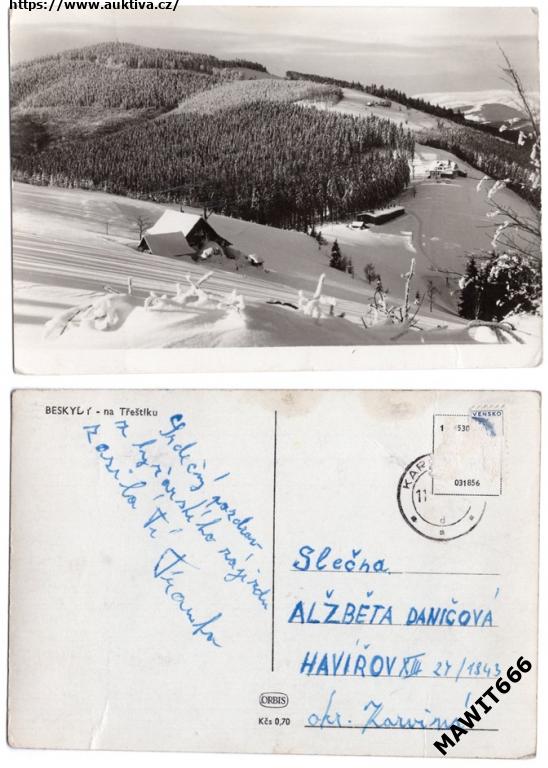 https://www.auktiva.cz/
BESKYDY - na Třeštíku
Srdečný pozdrav
z lyžařského zájezdu
zasílá Ti
Franta
VENSKO
1 530
031856
KAR
11
Slečna
ALŽBĚTA DANIČOVÁ
HAVÍŘOV XIII 27/1843
okr. Karviná
ORBIS
Kčs 0,70
MAWIT666